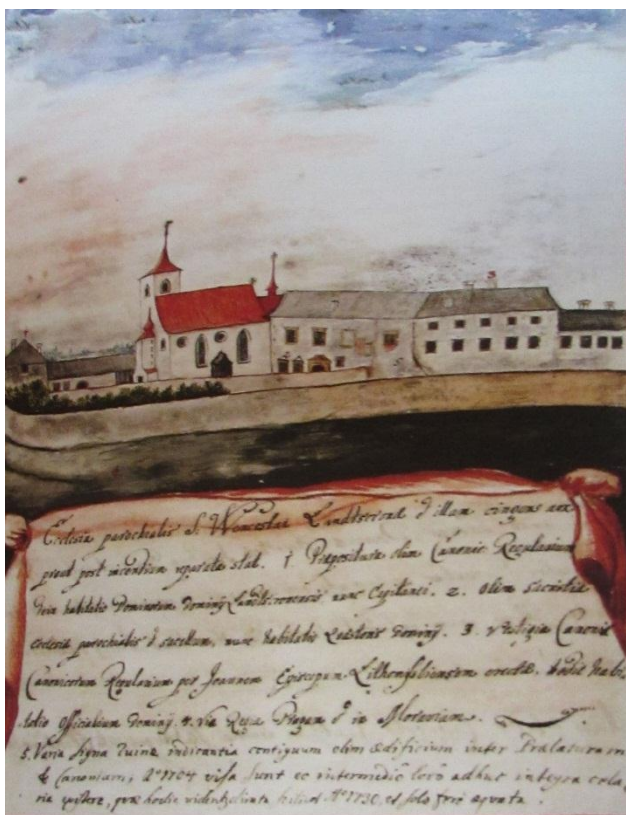 Ecclesia parochialis S. Wenceslai Landtscronae illam cingens arx
prout post incendium reparata stat. 1 Praepositura olim Canonic. Regularium
dein habitatio Dominorum dominij Landtscronensis nunc Capitanei. 2. Olim sacristia
ecclesiae parochialis sacellum, nunc habitatio dominij. 3. Vestigia
Canonicorum Regularium per Joannem Episcopum Lithomsliensem erectae. hodie
Officialium dominij. 4. Via Regia Pragam in Moraviam.
5. Varia signa ruinae indicantia contiguum olim aedificium inter Praelaturam
& Canoniam, Aº 1704 visa sunt in intermedio loco adhuc integra
quae hodie Aº 1730, et solo fere aequata.